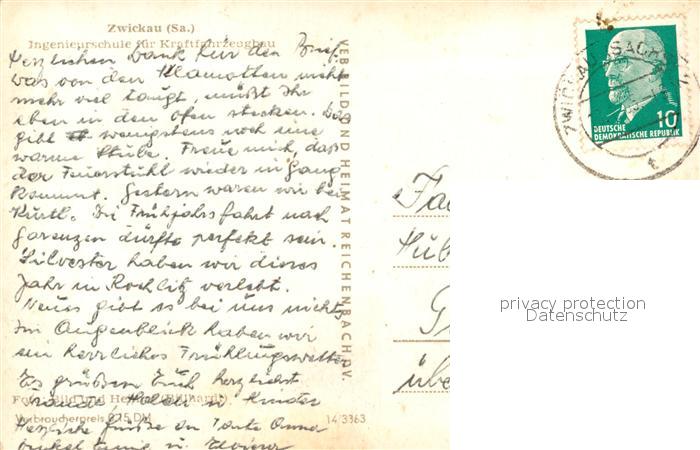 Zwickau (Sa.)
Ingenieurschule für Kraftfahrzeugbau
Herzlichen Dank für den Brief.
Was von den Klamotten nicht
mehr viel taugt, müßt Ihr
eben in den Ofen stecken. Das
gibt wenigstens noch eine
warme Stube. Freue mich, daß
der Feuerstuhl wieder in Gang
kommt. Gestern waren wir bei
Kurtl. Die Frühjahrsfahrt nach
dürfte perfekt sein.
Silvester haben wir dieses
Jahr in Rochlitz verlebt.
Neues gibt es bei uns nicht,
Im Augenblick haben wir
ein herrliches Frühlingswetter
Es grüßen Euch herzlichst
Kinder
Foto: Bild und Heimat
Verbraucherpreis 0,15 DM
14/3363
Herzliche Grüße an Tante Anna
u.
VEB BILD UND HEIMAT REICHENBACH i.V.
ZWICKAU (SACHS)
10
DEUTSCHE
DEMOKRATISCHE REPUBLIK
Fa
Hub
G
übe
privacy protection
Datenschutz